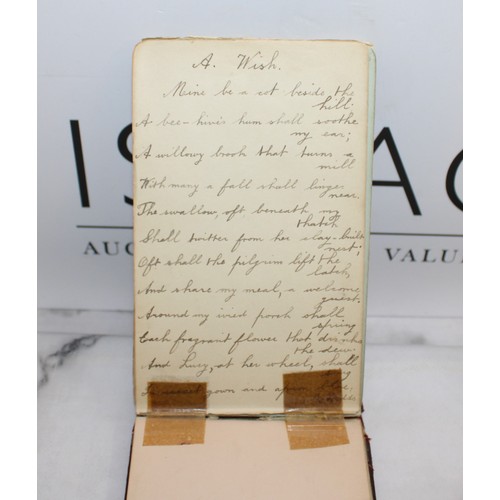 A. Wish.
Mine be a cot beside the
hill.
A bee-hive's hum shall soothe
my ear;
A willowy brook that turns a
mill
With many a fall shall linger
near.
The swallow, oft beneath my
thatch
Shall twitter from her clay-built
nest;
Oft shall the pilgrim lift the
latch,
And share my meal, a welcome
guest.
Around my ivied porch shall
spring
Each fragrant flower that drinks
the dew.
And Lucy, at her wheel, shall
gown and
IS AC
AUC VALU